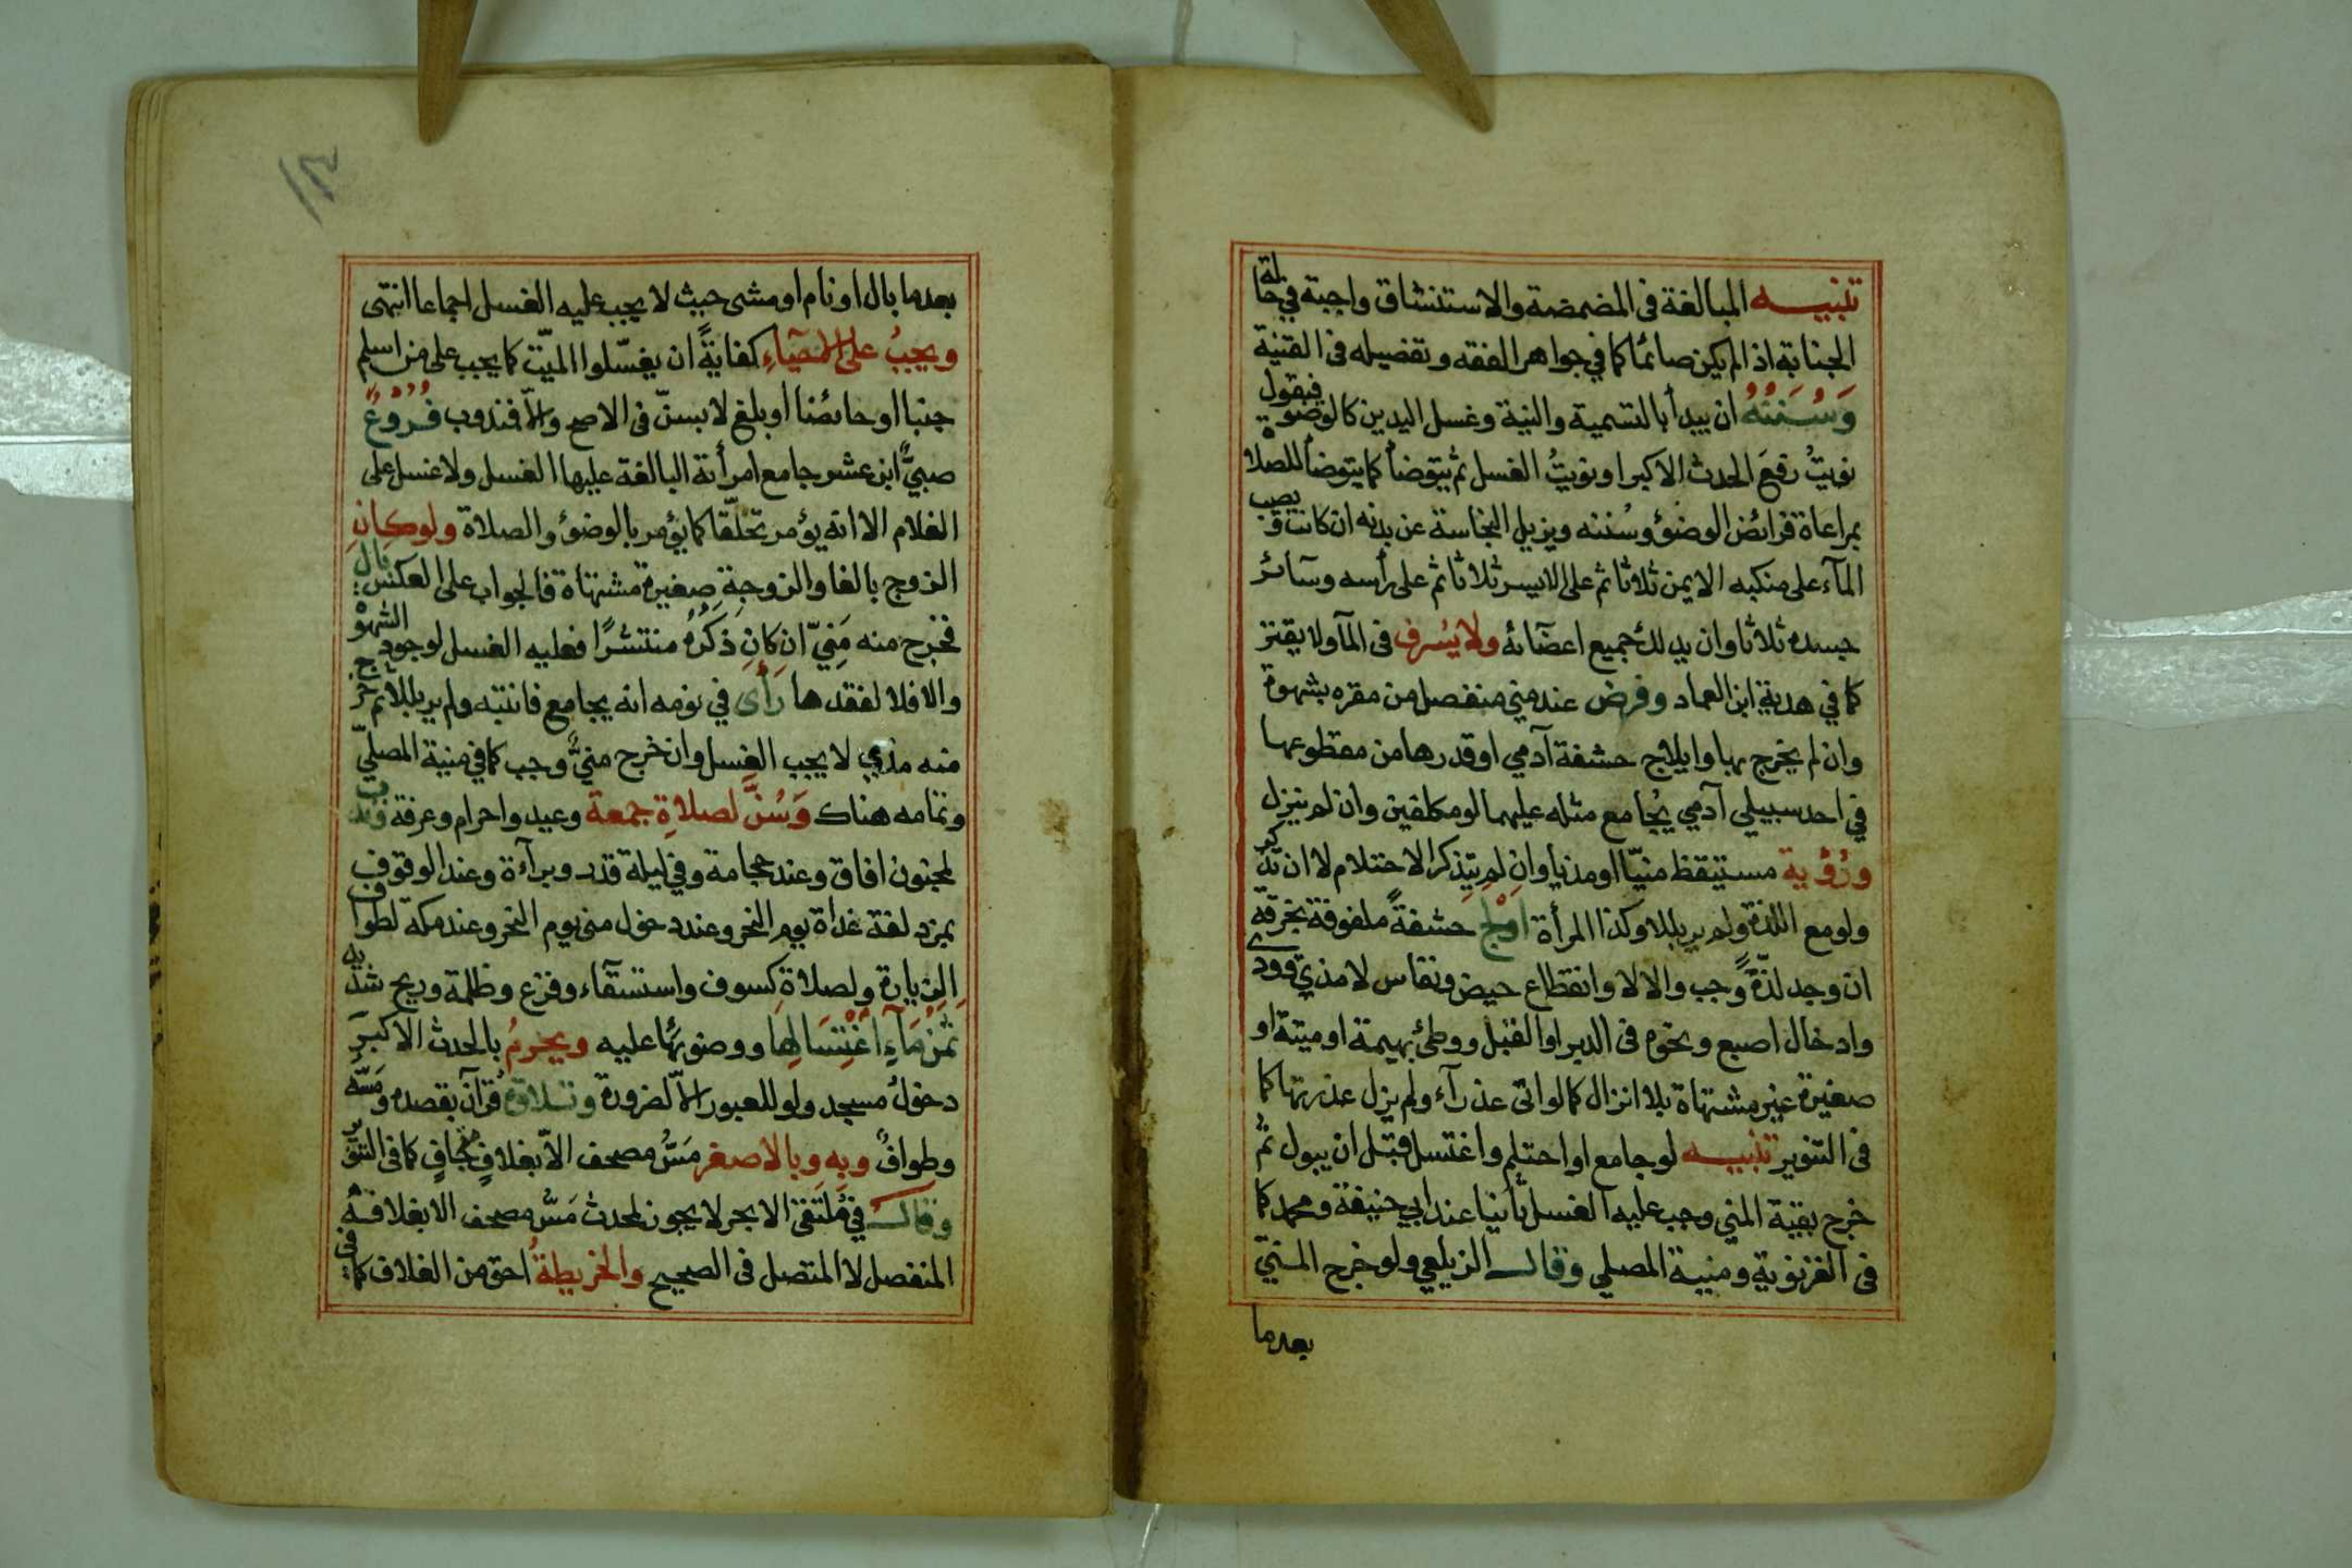 تنبيه المبالغة فى المضمضة والاستنشاق واجبة في حالة
الجنابة اذا لم يكن صائما كما في جواهر الفقه وتفصيله فى القنية
وَسُنَنُهُ ان يبدأ بالتسمية والنية وغسل اليدين كالوضوء فيقول
نويتُ رفعَ الحدث الاكبر او نويتُ الغسل ثم يتوضأ كما يتوضأ للصلاة
بمراعاة فرائض الوضوء وسُننه ويزيل النجاسة عن بدنه ان كانت ويصب
المآء على منكبه الايمن ثلاثا ثم على الايسر ثلاثا ثم على رأسه وسآئر
جسده ثلاثا وان يدلك جميع اعضآئه ولا يُسرف فى المآ ولا يقتر
كما في هدية ابن العماد وفرض عند مني منفصل من مقره بشهوة
وان لم يخرج بها وايلاج حشفة آدمي او قدرها من مقطوعها
في احد سبيلي آدمي يُجامع مثله عليهما لو مكلفين وان لم ينزل
ورُؤية مستيقظ منيّا او مذيا وان لم يتذكر الاحتلام لا ان تذكر
ولو مع اللذة ولم ير بللا وكذا المرأة اولج حشفةً ملفوفة بخرقة
ان وجد لذّة وجب والا لا وانقطاع حيض ونفاس لا مذي وودي
وادخال اصبع ونحوه فى الدبر او القبل ووطئ بهيمة او ميتة او
صغيرة غير مشتهاة بلا انزال كما لو اتى عذرآء ولم يزل عذرتها كما
فى التنوير تنبيه لو جامع او احتلم واغتسل قبل ان يبول ثم
خرج بقية المني وجب عليه الغسل ثانيا عند ابي حنيفة ومحمد كما
فى الغزنوية ومنية المصلي وقال الزيلعي ولو خرج المنيّ
بعدما
١٣
بعدما بال او نام او مشى حيث لا يجب عليه الغسل اجماعا انتهى
ويجبُ على الاحيآءِ كفايةً ان يغسّلوا الميّت كما يجب على من اسلم
جنبا او حائضا او بلغ لا بسنّ فى الاصح والّا فندوب فُرُوْعٌ
صبيٌّ ابن عشر جامع امرأته البالغة عليها الغسل ولا غسل على
الغلام الا انه يؤمر تخلّقا كما يؤمر بالوضوء والصلاة ولو كان
الزوج بالغا والزوجة صغيرة مشتهاة فالجواب على العكس بال
فخرج منه مَنِيّ ان كان ذَكَرُهُ منتشرًا فعليه الغسل لوجود الشهوة
والا فلا لفقدها رَأى في نومه انه يجامع فانتبه ولم ير بللا ثم خرج
منه مذي لا يجب الغسل وان خرج منيٌّ وجب كما في منية المصليّ
وتمامه هناك وَسُنَّ لصلاةِ جمعة وعيد واحرام وعرفة وندب
لمجنون افاق وعند حجامة وفي ليلة قدر وبرآءة وعند الوقوف
بمزدلفة غداة يوم النحر وعند دخول منى يوم النحر وعند مكة لطواف
الزيارة ولصلاة كسوف واستسقآء وفزع وظلمة وريح شديد
ثمَنُ مَآءِ اغْتِسَالِهَا ووضوئها عليه ويحرمُ بالحدث الاكبر
دخولُ مسجد ولو للعبور الّا لضرورة وتلاوة قرآن بقصده ومَسُّه
وطوافٌ وبه وبالاصغر مَسُّ مصحف الّا بغلافٍ متجافٍ كما فى التنوير
وقال في مُلتقى الابحر لا يجوز لمحدث مَسُّ مصحف الا بغلافه
المنفصل لا المتصل فى الصحيح والخريطةُ احق من الغلاف كما فى